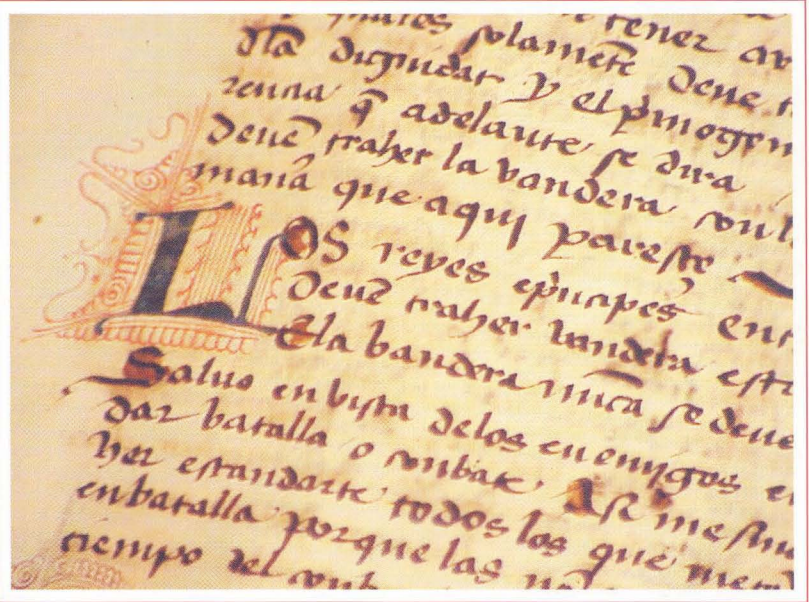 solamēte deue
dla dignidat y el pmogen
rencia q̄ adelante se dira
Deuē traher la vandera con l
manã que aqui paresce
LOS reyes epͥncipes ent
Deuē traher vandera esta
E la bandera nūca se deue
Saluo en bista delos enemigos e
dar batalla o conbate Asi me
her estandarte todos los que
en batalla porque las
tiempo del conb